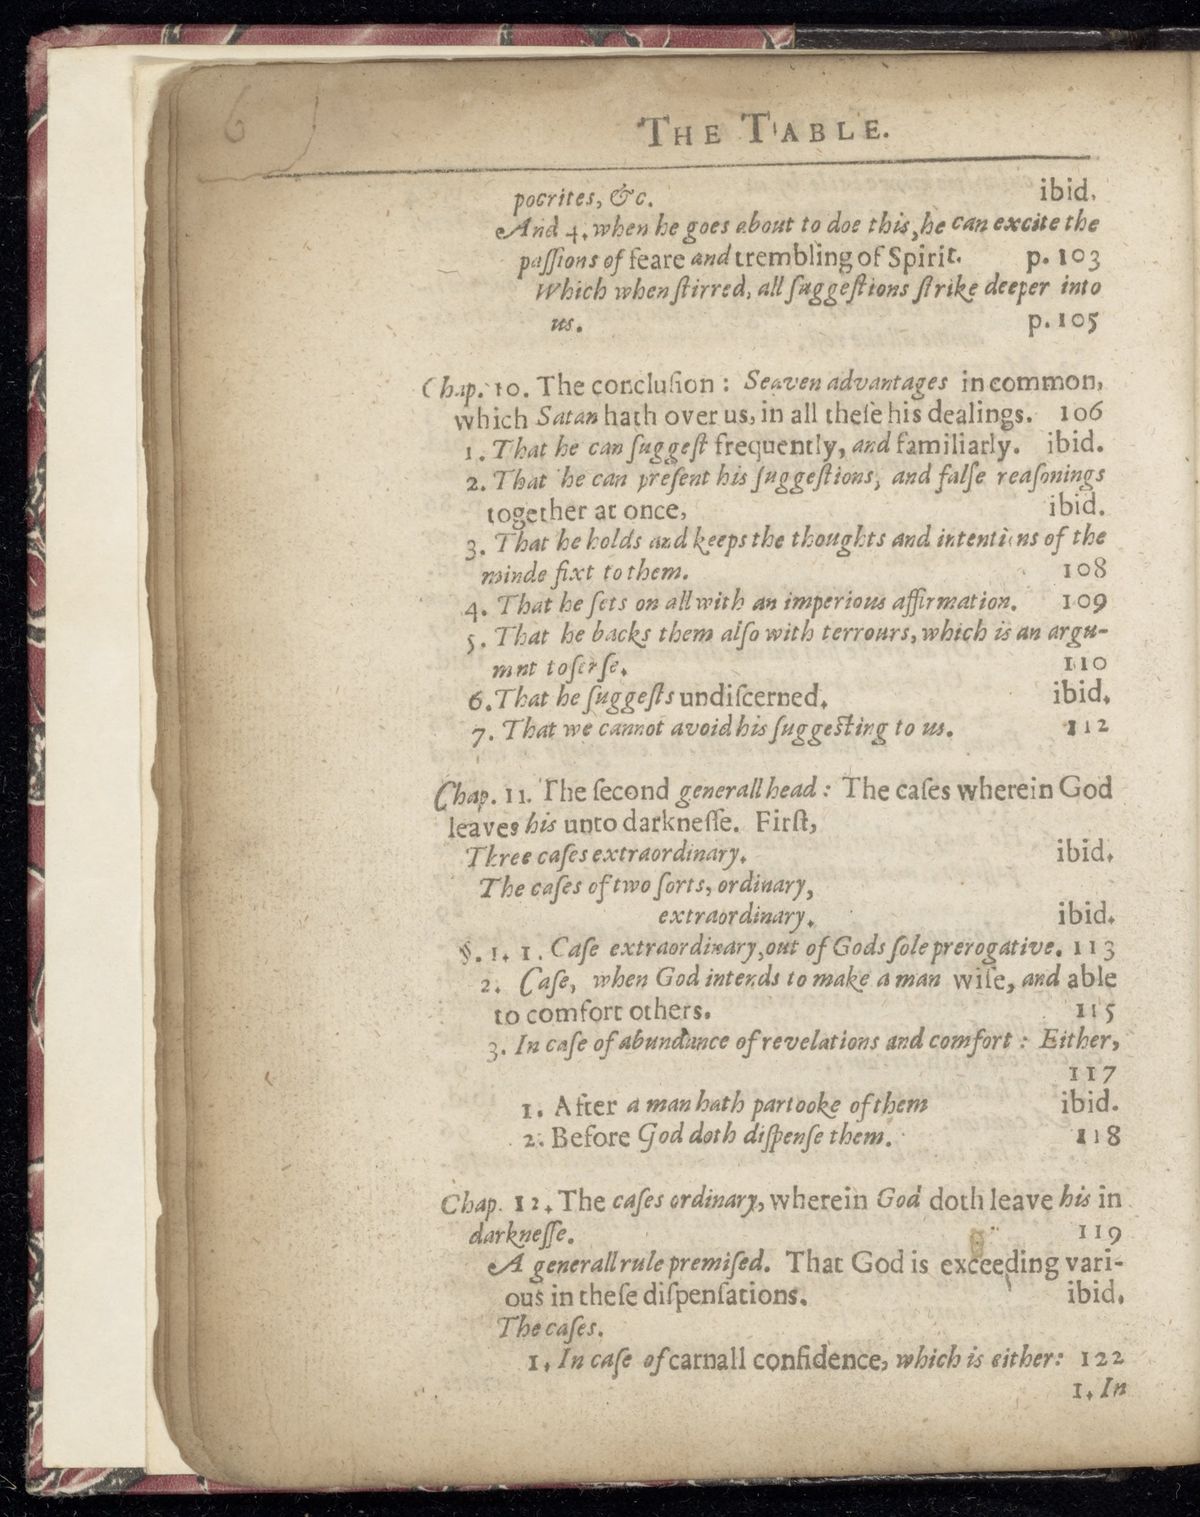 6
THE TABLE.
pocrites, &c. ibid.
And 4. when he goes about to doe this, he can excite the
paſſions of feare and trembling of Spirit. p. 103
Which when ſtirred, all ſuggeſtions ſtrike deeper into
us. p. 105
Chap. 10. The concluſion : Seaven advantages in common,
which Satan hath over us, in all theſe his dealings. 106
1. That he can ſuggeſt frequently, and familiarly. ibid.
2. That he can preſent his ſuggeſtions, and falſe reaſonings
together at once, ibid.
3. That he holds and keeps the thoughts and intentions of the
minde fixt to them. 108
4. That he ſets on all with an imperious affirmation. 109
5. That he backs them alſo with terrours, which is an argu-
mnt to ſerſe. 110
6. That he ſuggeſts undiſcerned. ibid.
7. That we cannot avoid his ſuggeſting to us. 112
Chap. 11. The ſecond generall head : The caſes wherein God
leaves his unto darkneſſe. Firſt,
Three caſes extraordinary. ibid.
The caſes of two ſorts, ordinary,
extraordinary. ibid.
§. 1. 1. Caſe extraordinary, out of Gods ſole prerogative. 113
2. Caſe, when God intends to make a man wiſe, and able
to comfort others. 115
3. In caſe of abundance of revelations and comfort : Either,
117
1. After a man hath partooke of them ibid.
2. Before God doth diſpenſe them. 118
Chap. 12. The caſes ordinary, wherein God doth leave his in
darkneſſe. 119
A generall rule premiſed. That God is exceeding vari-
ous in theſe diſpenſations. ibid.
The caſes.
1. In caſe of carnall confidence, which is either: 122
1. In